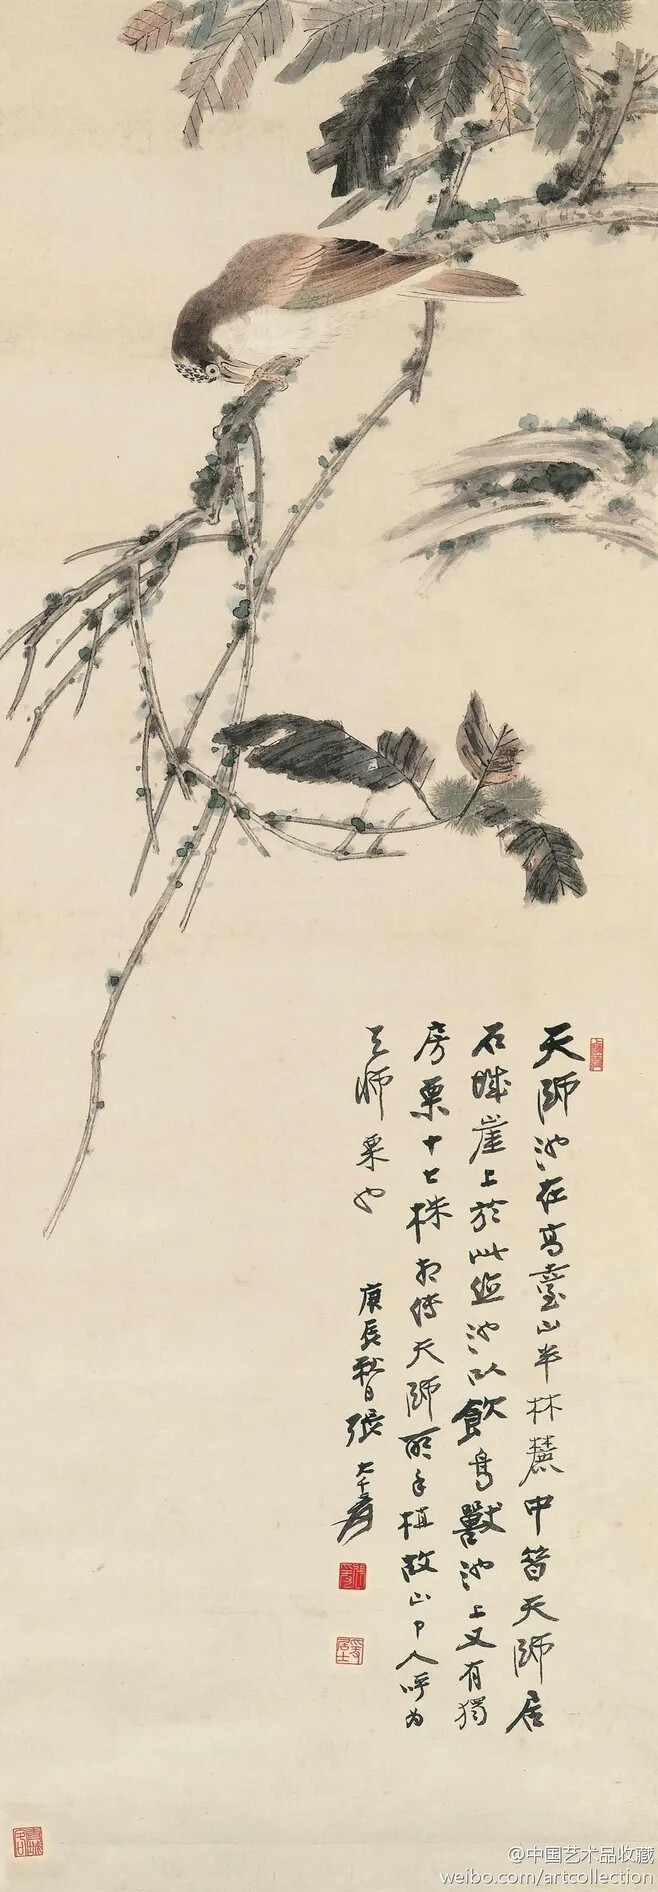 天師池在高臺山半林麓中昔天師居
石城崖上於此鑿池以飲鳥獸池上又有獨
房栗十七株相傳天師所手植故山中人呼為
天師栗也
庚辰秋日張大千爰
@中国艺术品收藏
weibo.com/artcollection